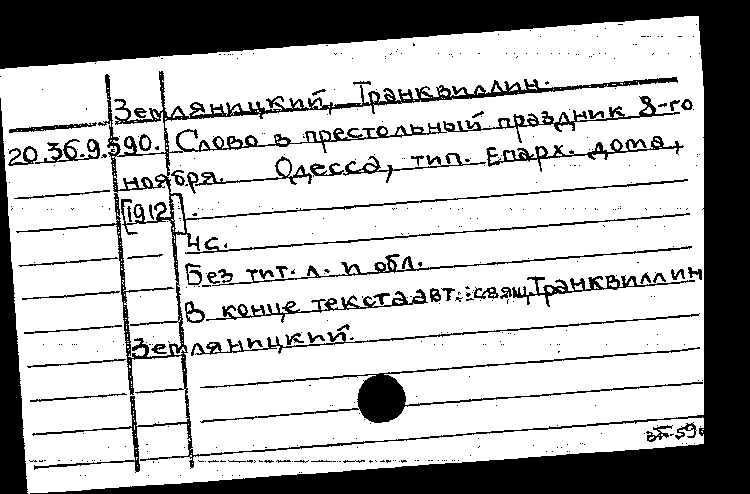 Земляницкий, Транквиллин.
20.36.9.590. Слово в престольный праздник 8-го
ноября. Одесса, тип. Епарх. дома,
[1912].
4с.
Без тит. л. и обл.
В конце текста авт.: свящ. Транквиллин
Земляницкий.